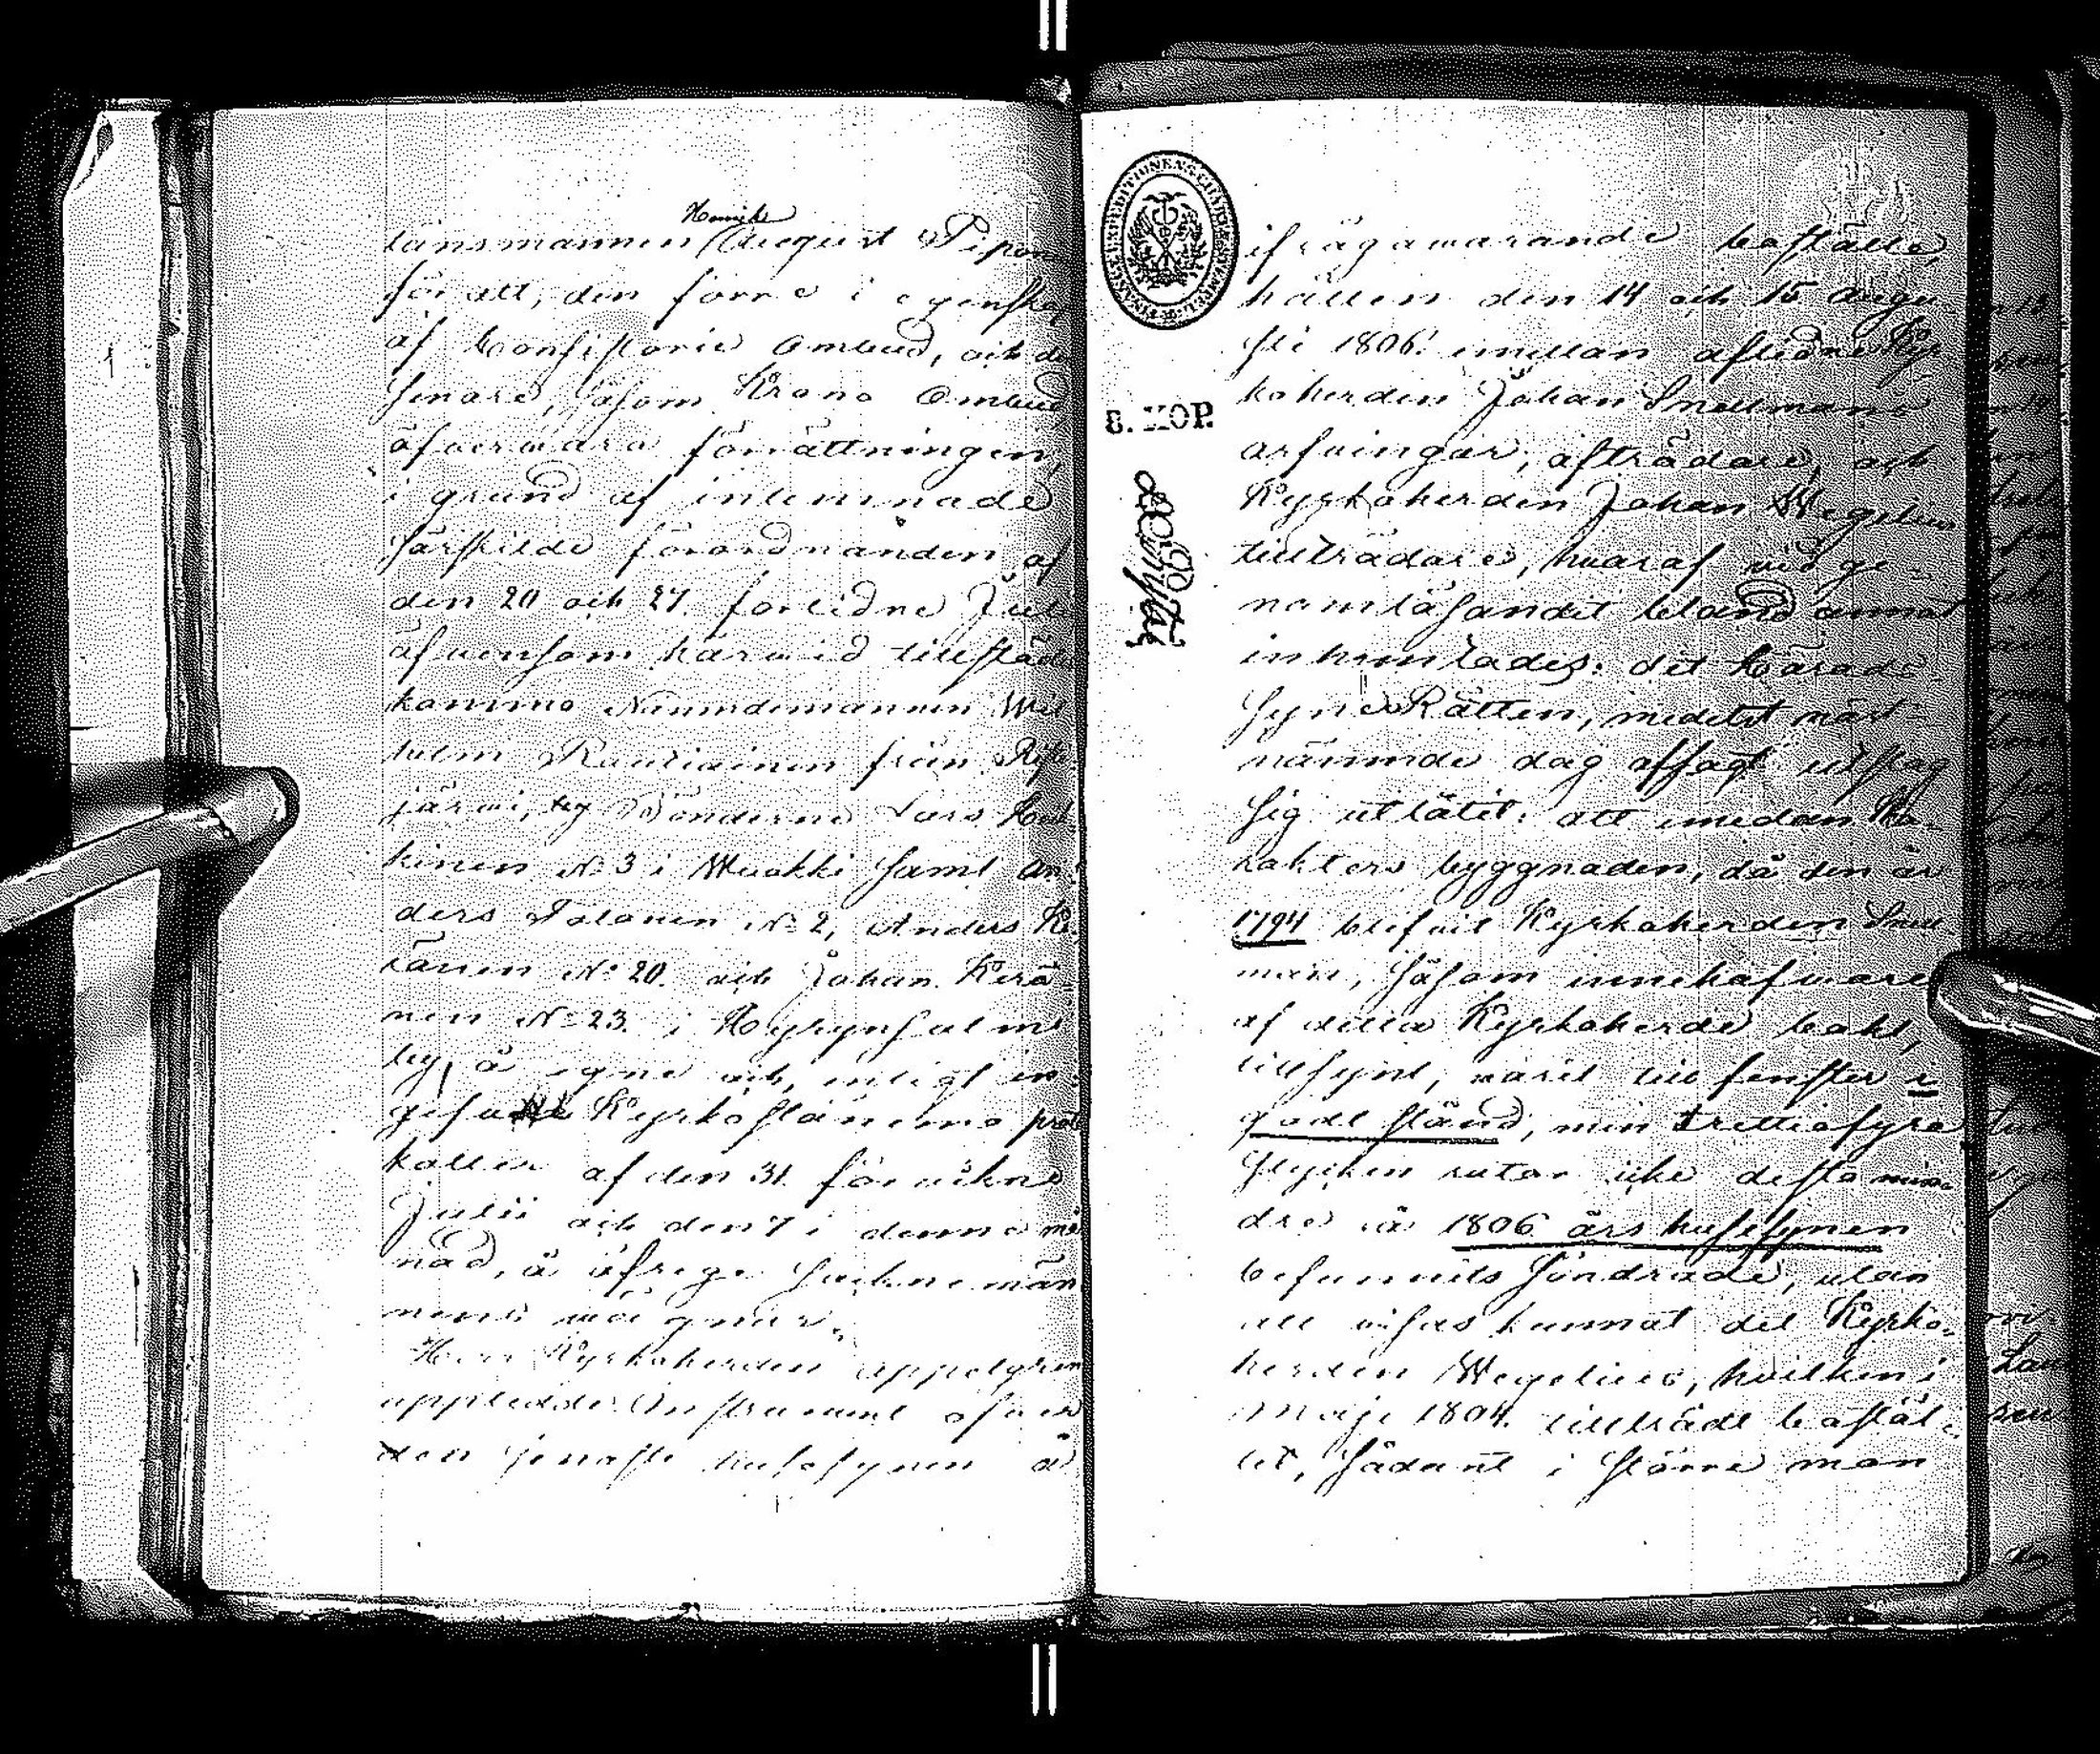 Henrik
länsmannen August Piponi
för att, den förre i egenska
af Consistorie Ombud, och de
senare, såsom Krono Ombud
öfvervara förrättningen,
i grund af intemnade
särskilde förordnanden af
den 20 och 27 förlidne Juli
äfvensom härvid tillstädes
kommo Nämndemannen Wil
helmi Rautiainen från Risti
järvi, Bönderne Lars Hei
kinen No 3 i Wuokki samt An
ders Tolonen No 2, Anders Ke
ränen No 20. och Johan Kerä
nen No 23. i Hyrynsalmi
by, å egne och, enligt in
gifna Kyrkostämmo proto
koller af den 31 förvikne
Julii och den 7 i denna må
nad, å öfrige Socknemän
nens vägnar.
Herr Kyrkoherden Appelgren
uppledde Instrument öfver
den senaste husesynen å
ifrågavarande boställe,
hållen den 14 och 15 Augu
sti 1806. emellan aflidne Kyr
koherden Johan Snellmans
arfvingar, afträdare, och
Kyrkoherden Johan Wegelius
tillträdare, hvaraf vid ge-
nomläsandet bland annat
inhemtades: det Härads
Syne Rätten, medelst märt-
nämnde dag afsagt utslag
sig utlåtit: att emedan Ka-
rakters byggnaden, då den år
1794 blifvit Kyrkoherden Snell-
man, såsom innehafvare
af detta Kyrkoherde bohl,
tillsynt, varit till fenster i
godt stånd, men trettiofyra
stycken rutor icke desto min-
dre vid 1806 års husesynen
befunnits söndrade, utan
att visas kunnat det Kyrko-
herden Wegelius, hvilken i
Maji 1804. tillträdt bostäl-
let, sådant i större mån
8. KOP.